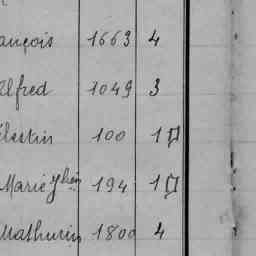 ançois 1663 4
Alfred 1049 3
lestin 100 1
Marie 194 1
Mathurin 1800 4